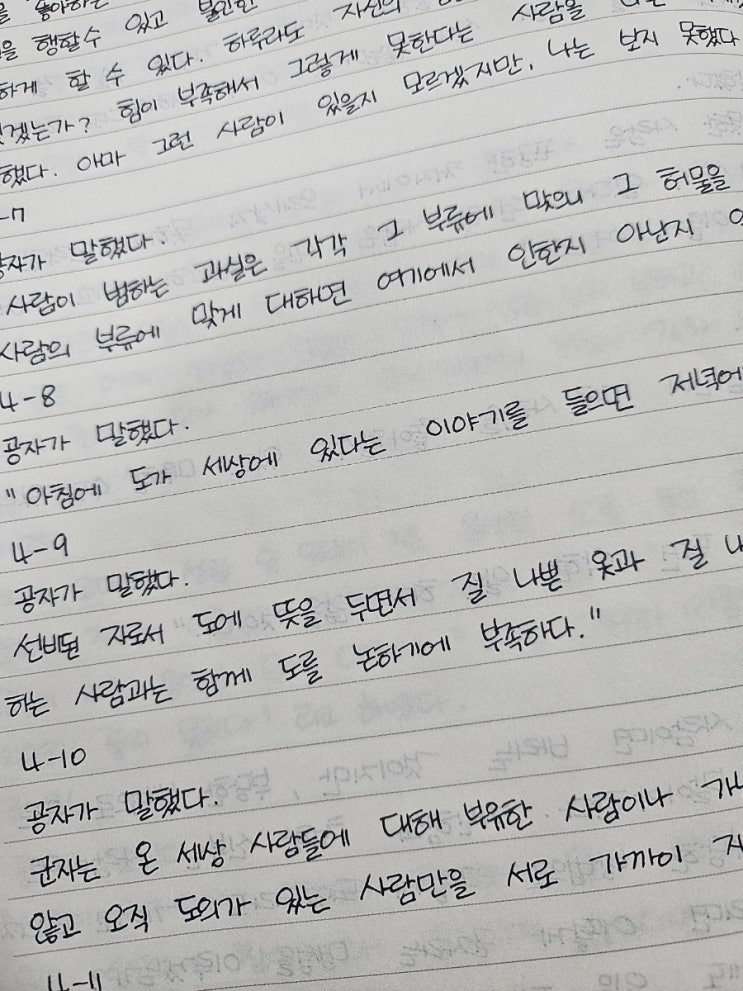 을 행할 수 있고 불인한
하게 할 수 있다. 하루라도 자신의
겠는가? 힘이 부족해서 그렇게 못한다는 사람을
했다. 아마 그런 사람이 있을지 모르겠지만, 나는 보지 못했다
-7
공자가 말했다.
사람이 범하는 과실은 각각 그 부류에 맞으니 그 허물을
사람의 부류에 맞게 대하면 여기에서 인한지 아닌지
4-8
공자가 말했다.
"아침에 도가 세상에 있다는 이야기를 들으면 저녁에
4-9
공자가 말했다.
선비된 자로서 도에 뜻을 두면서 질 나쁜 옷과 질 나
하는 사람과는 함께 도를 논하기에 부족하다."
4-10
공자가 말했다.
군자는 온 세상 사람들에 대해 부유한 사람이나 가
않고 오직 도의가 있는 사람만을 서로 가까이 지
4-11